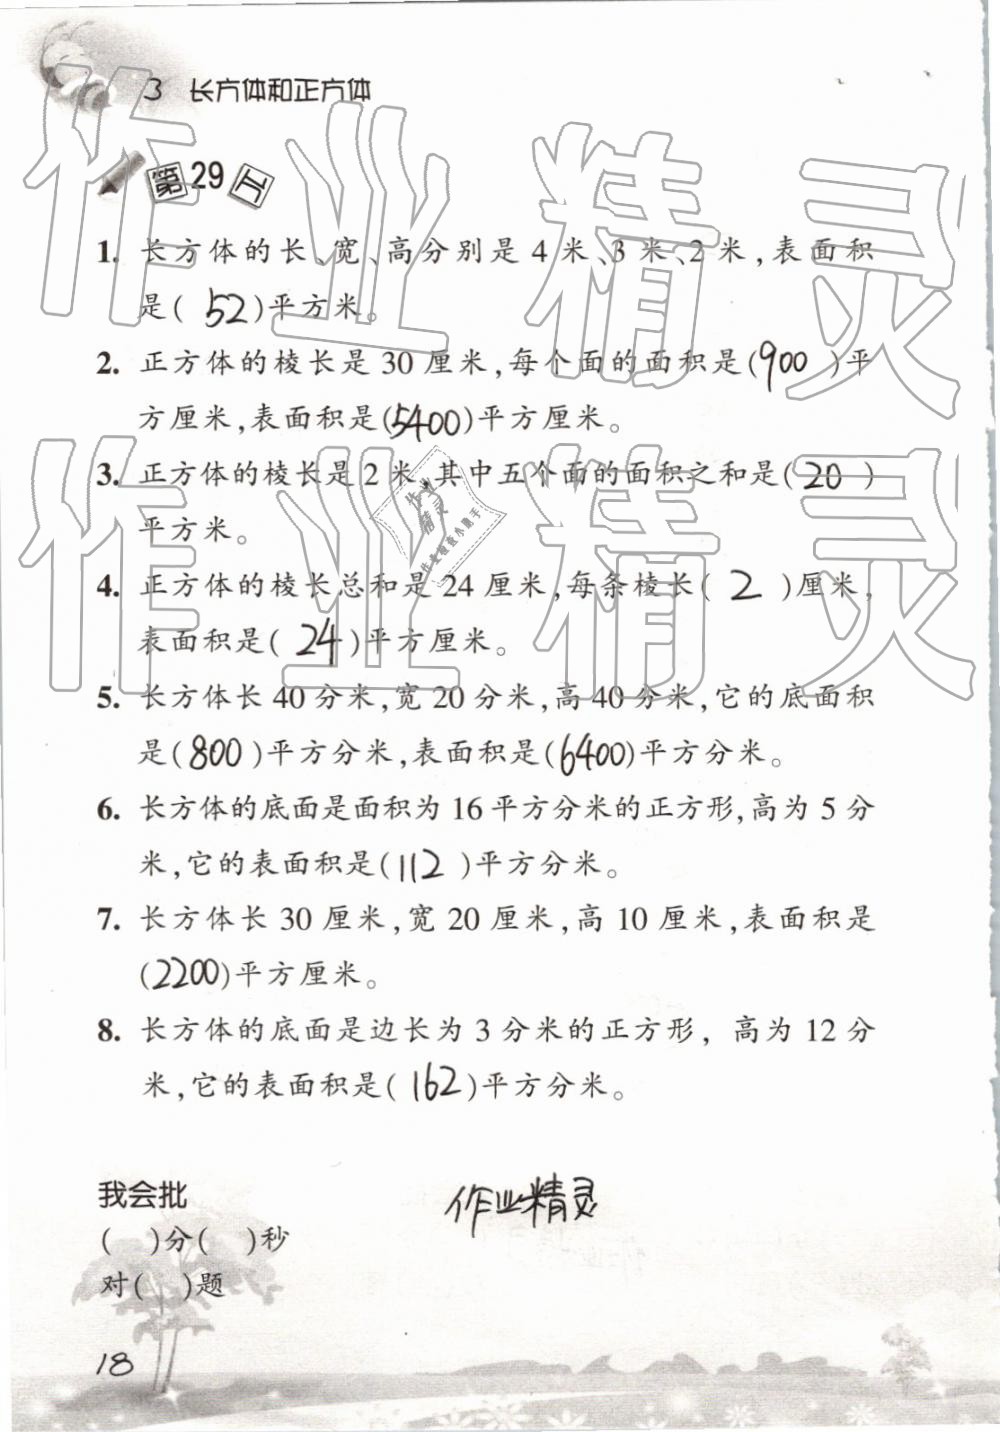 3 长方体和正方体
第29工
1. 长方体的长、宽、高分别是4米、3米、2米,表面积
是( 52 )平方米。
2. 正方体的棱长是30厘米,每个面的面积是(900 )平
方厘米,表面积是(5400)平方厘米。
3. 正方体的棱长是2米,其中五个面的面积之和是( 20 )
平方米。
4. 正方体的棱长总和是24厘米,每条棱长( 2 )厘米,
表面积是( 24 )平方厘米。
5. 长方体长40分米,宽20分米,高40分米,它的底面积
是(800 )平方分米,表面积是(6400)平方分米。
6. 长方体的底面是面积为16平方分米的正方形,高为5分
米,它的表面积是(112 )平方分米。
7. 长方体长30厘米,宽20厘米,高10厘米,表面积是
(2200)平方厘米。
8. 长方体的底面是边长为3分米的正方形, 高为12分
米,它的表面积是( 162 )平方分米。
我会批
( )分( )秒
对( )题
作业精灵
18
作业精灵
作业精灵
作业精灵
作业检查小助手